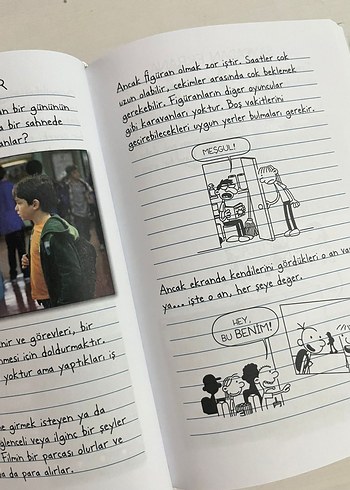 R
an bir gününün
a bir sahnede
anlar?
inir ve görevleri, bir
nmesi için doldurmaktır.
yoktur ama yaptıkları iş
e girmek isteyen ya da
ğlenceli veya ilginç bir şeyler
Filmin bir parçası olurlar ve
a da para alırlar.
Ancak figüran olmak zor iştir. Saatler çok
uzun olabilir, çekimler arasında çok beklemek
gerekebilir. Figüranların diğer oyuncular
gibi karavanları yoktur. Boş vakitlerini
geçirebilecekleri uygun yerler bulmaları gerekir.
MEŞGUL!
Ancak ekranda kendilerini gördükleri o an va
ya... işte o an, her şeye değer.
HEY,
BU BENİM!